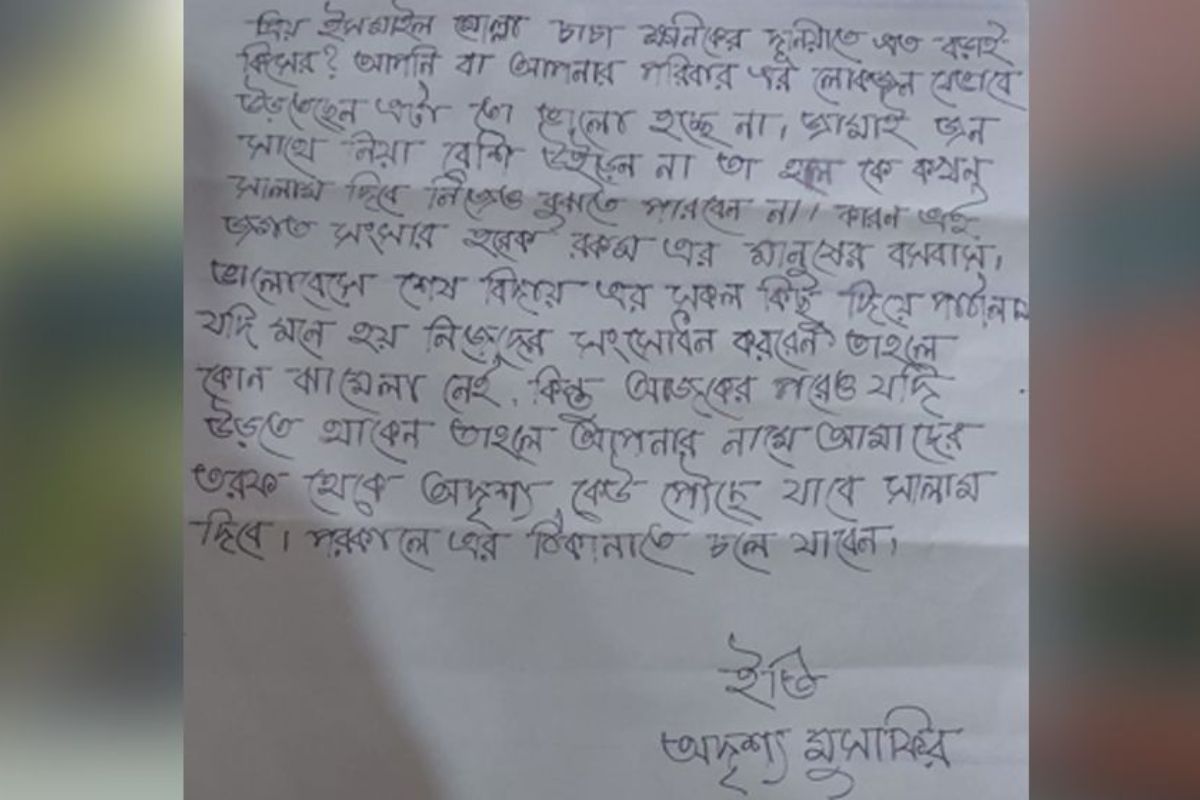 প্রিয় ইসমাইল মোল্লা চাচা ক্ষনিকের দুনিয়াতে এত বড়াই
কিসের? আপনি বা আপনার পরিবার এর লোকজন যেভাবে
উড়তেছেন এটা তো ভালো হচ্ছে না। জামাই জন
সাথে নিয়া বেশি উইড়েন না তা হলে কে কখন
সালাম দিবে নিজেও বুঝতে পারবেন না। কারন এই
জগত সংসার হরেক রকম এর মানুষের বসবাস।
ভালোবেসে শেষ বিদায় এর সকল কিছু দিয়ে পাঠালাম
যদি মনে হয় নিজেদের সংসোধন করবেন তাহলে
কোন ঝামেলা নেই. কিন্তু আজকের পরেও যদি
উড়তে থাকেন তাহলে আপনার নামে আমাদের
তরফ থেকে অদৃশ্য কেউ পৌছে যাবে সালাম
দিবে। পরকালে এর ঠিকানাতে চলে যাবেন।
ইতি
অদৃশ্য মুসাফির